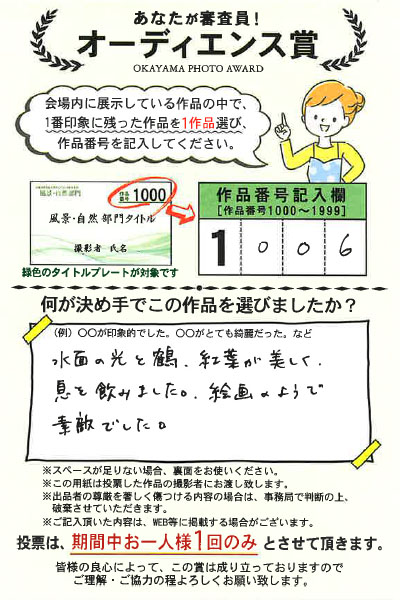 あなたが審査員!
オーディエンス賞
OKAYAMA PHOTO AWARD
会場内に展示している作品の中で、
1番印象に残った作品を1作品選び、
作品番号を記入してください。
風景・自然部門
作品番号 1000
風景・自然部門タイトル
撮影者 氏名
緑色のタイトルプレートが対象です
作品番号記入欄
[作品番号1000〜1999]
1 0 0 6
何が決め手でこの作品を選びましたか?
(例)〇〇が印象的でした。〇〇がとても綺麗だった。など
水面の光と鶴、紅葉が美しく、
息を飲みました。絵画のようで
素敵でした。
※スペースが足りない場合、裏面をお使いください。
※この用紙は投票した作品の撮影者にお渡し致します。
※出品者の尊厳を著しく傷つける内容の場合は、事務局で判断の上、
破棄させていただきます。
※ご記入頂いた内容は、WEB等に掲載する場合がございます。
投票は、期間中お一人様1回のみ とさせて頂きます。
皆様の良心によって、この賞は成り立っておりますので
ご理解・ご協力の程よろしくお願い致します。